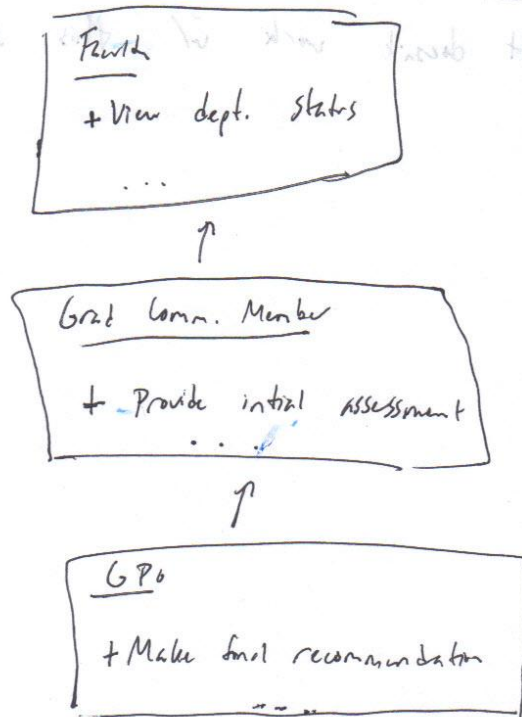 + View dept. status
...
Grad Comm. Member
+ Provide intial assessment
...
GPO
+ Make final recommendation
...